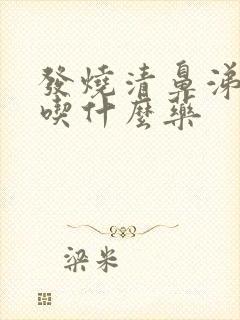 發燒清鼻涕
喫什麼藥
梁米